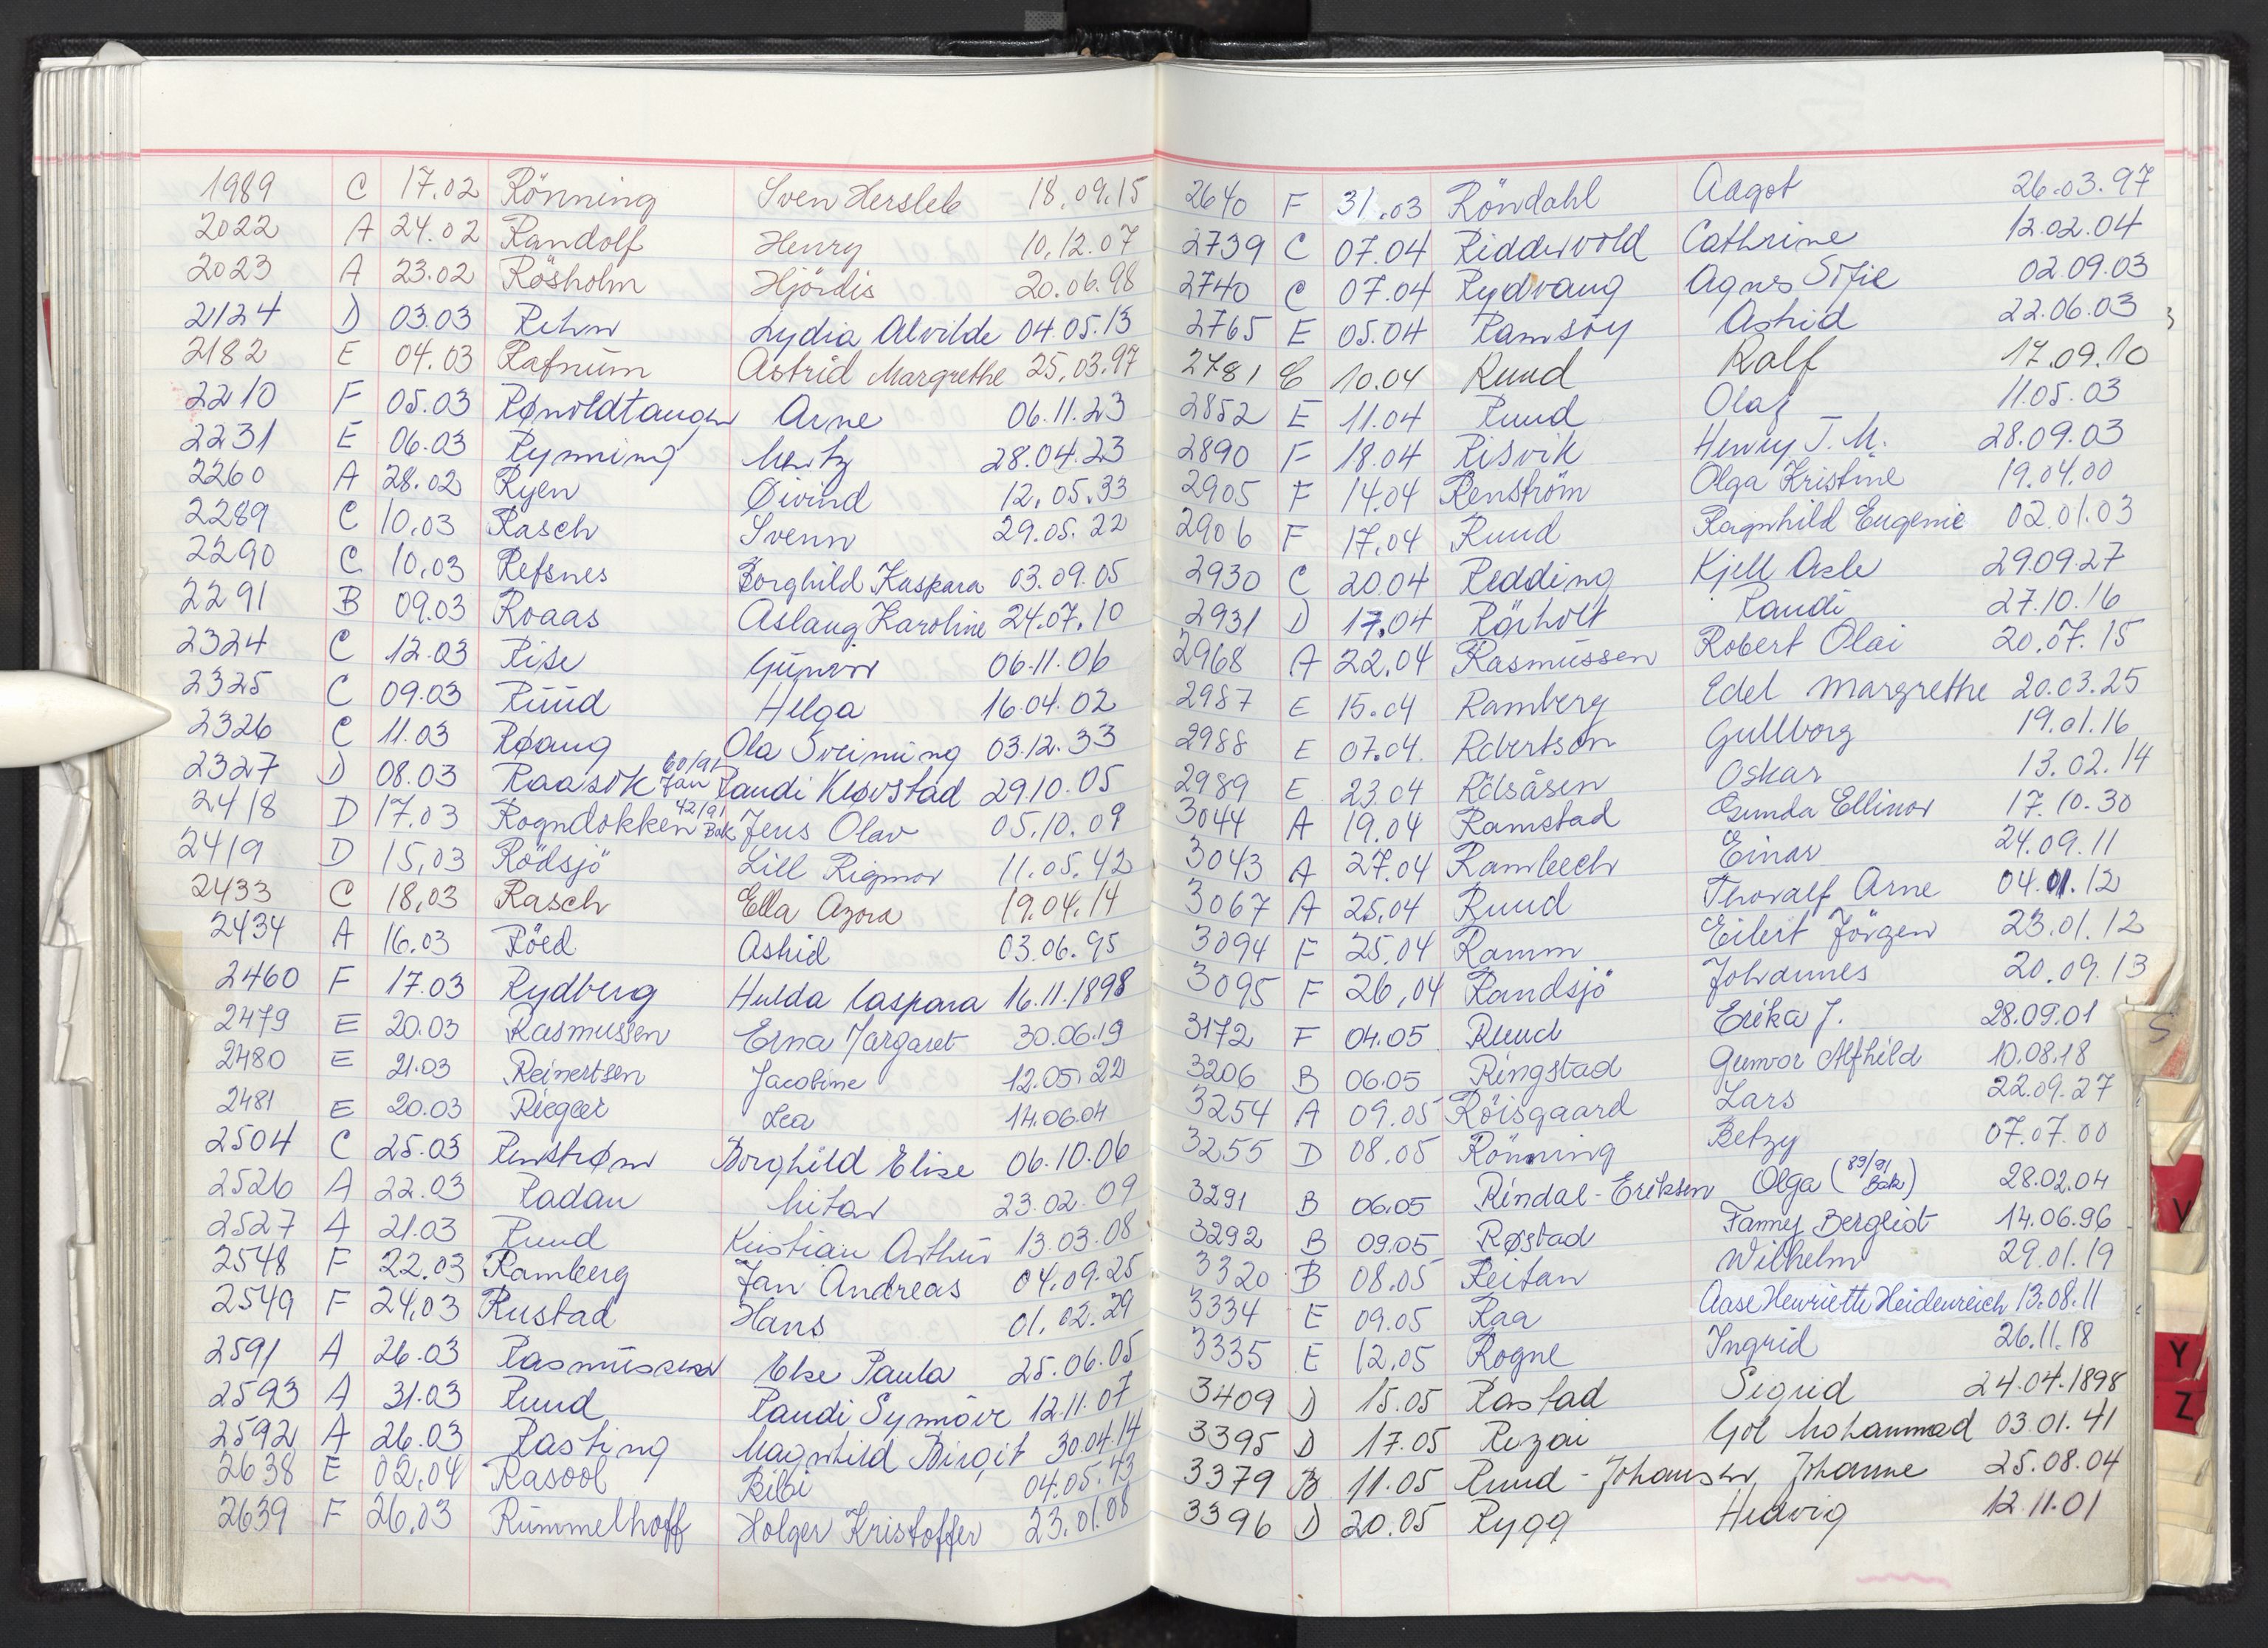 1989 C 17.02 Rönning Sven Hersleb 18.09.15
2022 A 24.02 Randolf Henry 10.12.07
2023 A 23.02 Rösholm Hjördis 20.06.98
2124 D 03.03 Rehn Lydia Alvilde 04.05.13
2182 E 04.03 Rafnum Astrid Margrethe 25.03.97
2210 F 05.03 Rønoldtangen Arne 06.11.23
2231 E 06.03 Rynning Mentz 28.04.23
2260 A 28.02 Ryen Øivind 12.05.33
2289 C 10.03 Rasch Svenn 29.05.22
2290 C 10.03 Refsnes Borghild Kaspara 03.09.05
2291 B 09.03 Roaas Aslaug Karoline 24.07.10
2324 C 12.03 Rise Gunvor 06.11.06
2325 C 09.03 Ruud Helga 16.04.02
2326 C 11.03 Røang Ola Sveinung 03.12.33
2327 D 08.03 Raasok 60/91 Jan Randi Kløvstad 29.10.05
2418 D 17.03 Rogndokken 42/91 Bak Jens Olav 05.10.09
2419 D 15.03 Rödsjö Lill Rigmor 11.05.42
2433 C 18.03 Rasch Ella Azora 19.04.14
2434 A 16.03 Röed Astrid 03.06.95
2460 F 17.03 Rydberg Hulda Caspara 16.11.1898
2479 E 20.03 Rasmussen Erna Margaret 30.06.19
2480 E 21.03 Reinertsen Jacobine 12.05.22
2481 E 20.03 Riegeer Lea 14.06.04
2504 C 25.03 Renstrøm Borghild Elise 06.10.06
2526 A 22.03 Radan Mitar 23.02.09
2527 A 21.03 Ruud Kristian Arthur 13.03.08
2548 F 22.03 Ramberg Jan Andreas 04.09.25
2549 F 24.03 Rustad Hans 01.02.29
2591 A 26.03 Rasmussen Else Paula 25.06.05
2593 A 31.03 Ruud Randi Synnöve 12.11.07
2592 A 26.03 Rasting Magnhild Birgit 30.04.14
2638 E 02.04 Rasool Bibi 04.05.43
2639 F 26.03 Rummelhoff Holger Kristoffer 23.01.08
2640 F 31.03 Röndahl Aagot 26.03.97
2739 C 07.04 Riddervold Cathrine 12.02.04
2740 C 07.04 Rydvang Agnes Sofie 02.09.03
2765 E 05.04 Ramsöy Astrid 22.06.03
2781 C 10.04 Ruud Rolf 17.09.10
2852 E 11.04 Ruud Olaf 11.05.03
2890 F 18.04 Risvik Henry J. M. 28.09.03
2905 F 14.04 Renström Olga Kristine 19.04.00
2906 F 17.04 Ruud Ragnhild Eugenie 02.01.03
2930 C 20.04 Redding Kjell Asle 29.09.27
2931 D 17.04 Rörholt Randi 27.10.16
2968 A 22.04 Rasmussen Robert Olai 20.07.15
2987 E 15.04 Ramberg Edel Margrethe 20.03.25
2988 E 07.04. Robertson Gullborg 19.01.16
2989 E 23.04 Rölsåsen Oskar 13.02.14
3044 A 19.04 Ramstad Gunda Ellinor 17.10.30
3043 A 27.04 Rambech Einar 24.09.11
3067 A 25.04 Ruud Thoralf Arne 04.01.12
3094 F 25.04 Ramm Eilert Jörgen 23.01.12
3095 F 26.04 Randsjö Johannes 20.09.13
3172 F 04.05 Ruud Erika J. 28.09.01
3206 B 06.05 Ringstad Gunvor Alfhild 10.08.18
3254 A 09.05 Röisgaard Lars 22.09.27
3255 D 08.05 Rönning Betzy 07.07.00
3291 B 06.05 Rindal-Eriksen Olga (89/91 Bak) 28.02.04
3292 B 09.05 Røstad Fanny Bergliot 14.06.96
3320 B 08.05 Reitan Wilhelm 29.01.19
3334 E 09.05 Raa Aase Henriette Heidenreich 13.08.11
3335 E 12.05 Rogne Ingrid 26.11.18
3409 D 15.05 Rastad Sigrid 24.04.1898
3395 D 17.05 Rezai Gol Mohammad 03.01.41
3379 B 11.05 Ruud-Johansen Johanne 25.08.04
3396 D 20.05 Rygg Hedvig 12.11.01
S
V
Y
Z